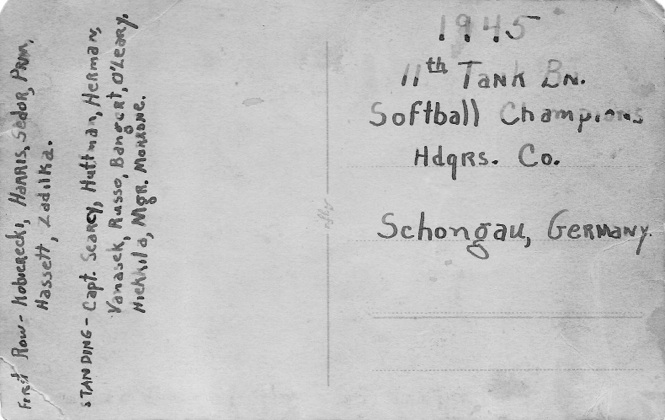 First Row - Kobierecki, Harris, Sedor, Prim,
Hassett, Zadilka.
STANDING - Capt. Searcy, Huffman, Herman,
Vanasek, Russo, Bangert, O'Leary,
Hiekkila, Mgr. Morrone.
1945
11th Tank Bn.
Softball Champions
Hdqrs. Co.
Schongau, Germany.